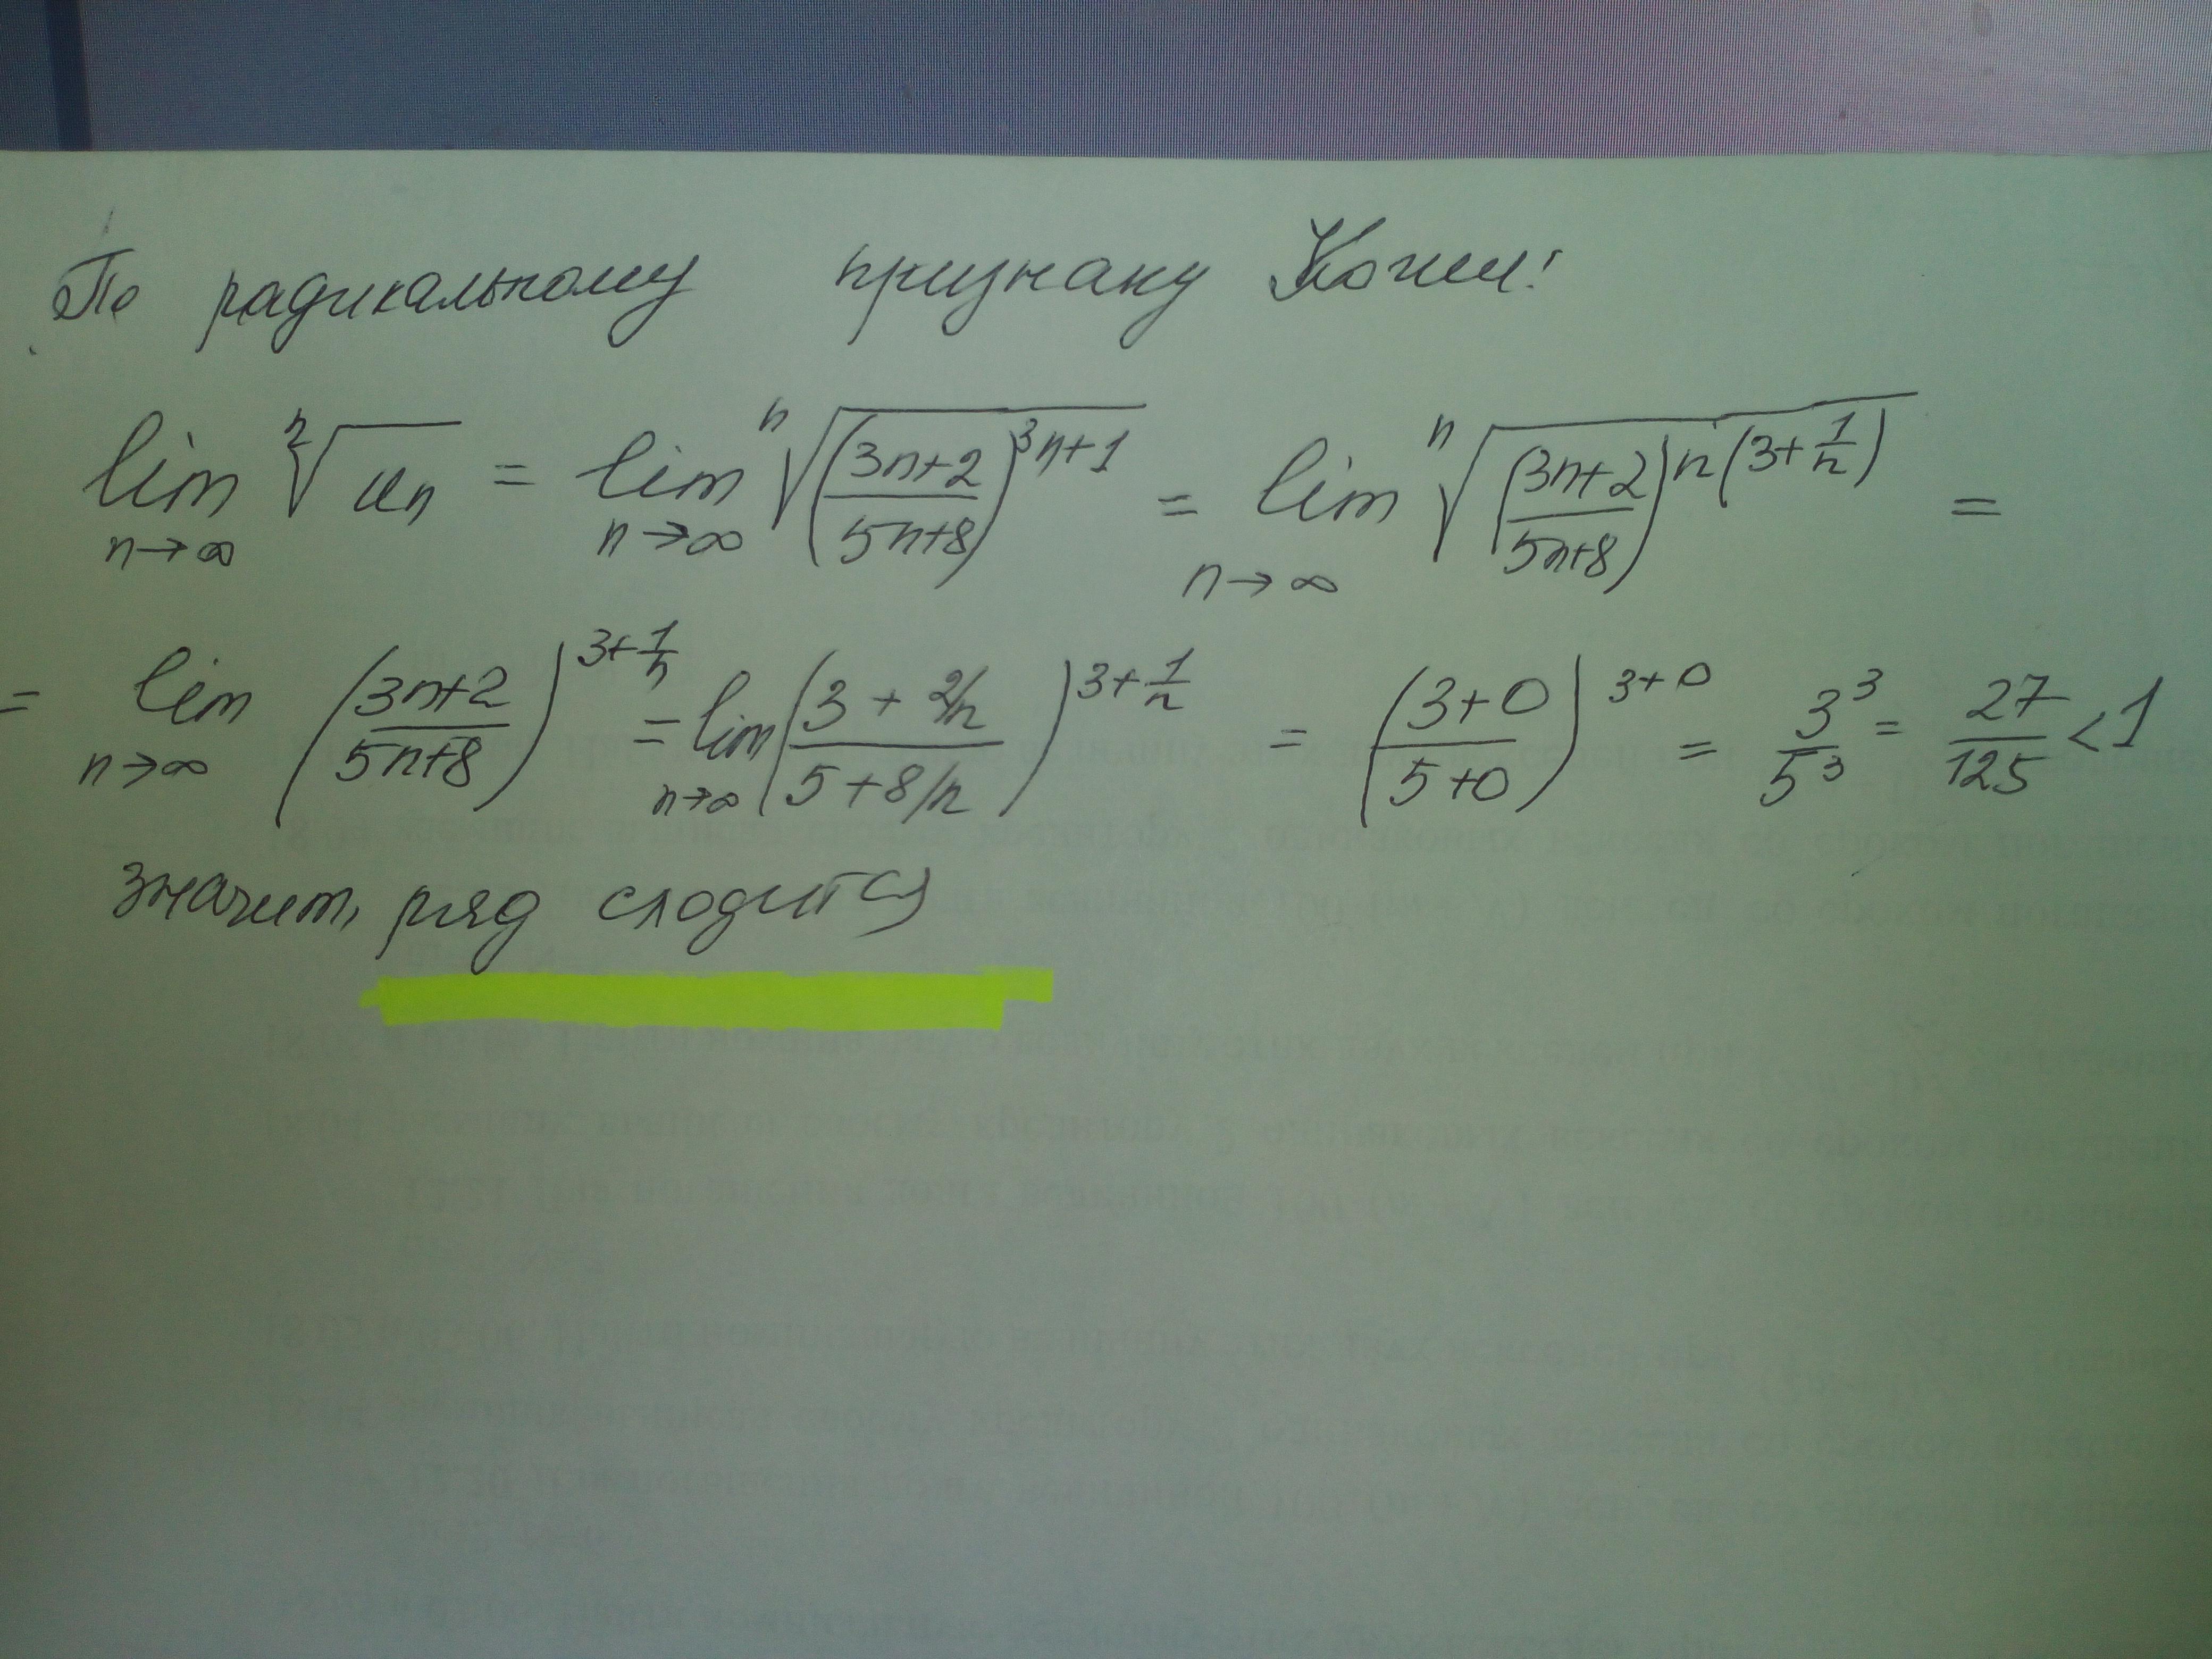 По радикальному признаку Коши:
lim n→∞ ⁿ√uₙ = lim n→∞ ⁿ√((3n+2)/(5n+8))^(3n+1) = lim n→∞ ⁿ√((3n+2)/(5n+8))^(n(3+1/n)) =
= lim n→∞ ((3n+2)/(5n+8))^(3+1/n) = lim n→∞ ((3+2/n)/(5+8/n))^(3+1/n) = ((3+0)/(5+0))^(3+0) = 3³/5³ = 27/125 < 1
значит, ряд сходится